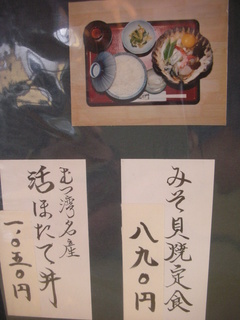 みそ貝焼定食
八九〇円
むつ湾名産
活ほたて丼
一、〇五〇円